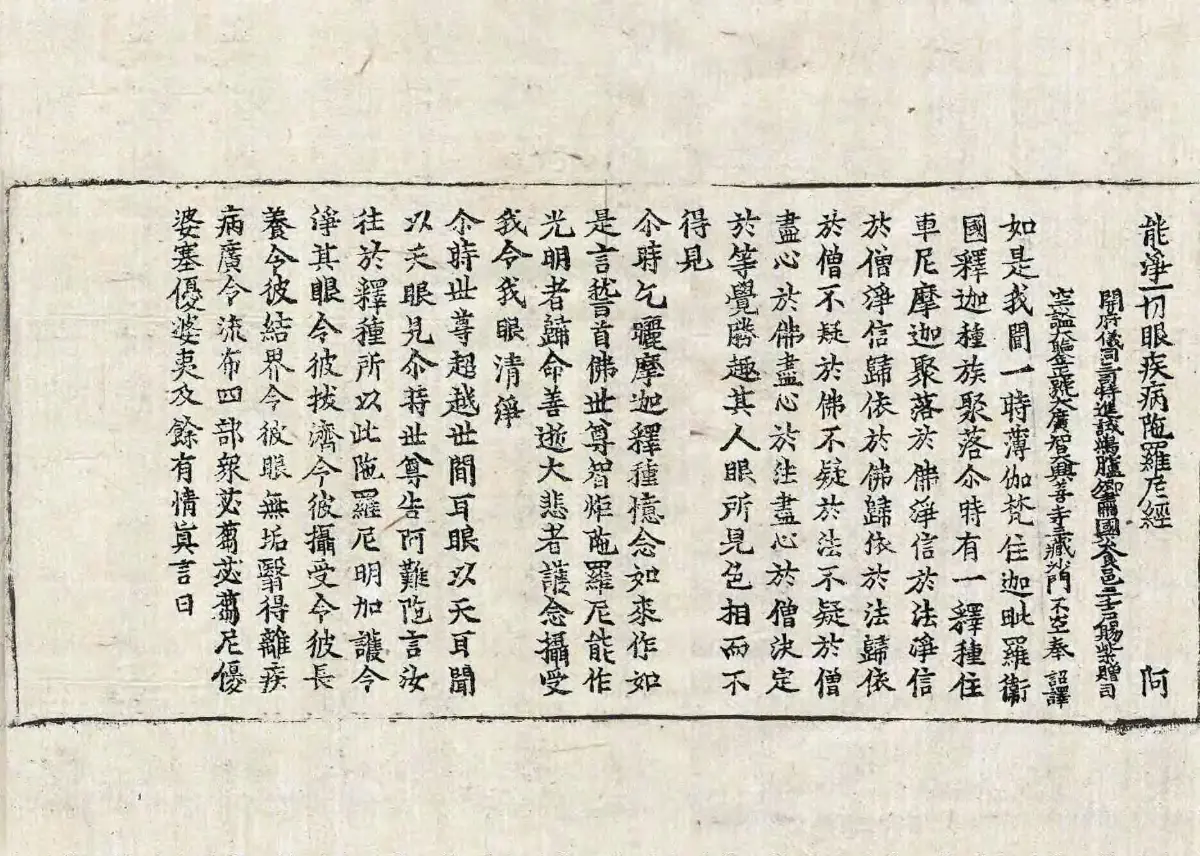 能淨一切眼疾病陁羅尼經 阿
開府儀同三司特進試鴻臚卿肅國公食邑三千戶賜紫贈司
空謚大鑒正號大廣智大興善寺三藏沙門不空奉 詔譯
如是我聞一時薄伽梵住迦毗羅衞
國釋迦種族聚落尒時有一釋種住
車尼摩迦聚落於佛淨信於法淨信
於僧淨信歸依於佛歸依於法歸依
於僧不疑於佛不疑於法不疑於僧
盡心於佛盡心於法盡心於僧決定
於等覺勝趣其人眼所見色相而不
得見
尒時乞曬摩迦釋種憶念如來作如
是言稽首佛世尊智炬陁羅尼能作
光明者歸命善逝大悲者護念攝受
我令我眼清淨
尒時世尊超越世間耳眼以天耳聞
以天眼見尒時世尊告阿難陁言汝
往於釋種所以此陁羅尼明加護令
淨其眼令彼拔濟令彼攝受令彼長
養令彼結界令彼眼無垢翳得離疾
病廣令流布四部衆苾蒭苾蒭尼優
婆塞優婆夷及餘有情眞言曰